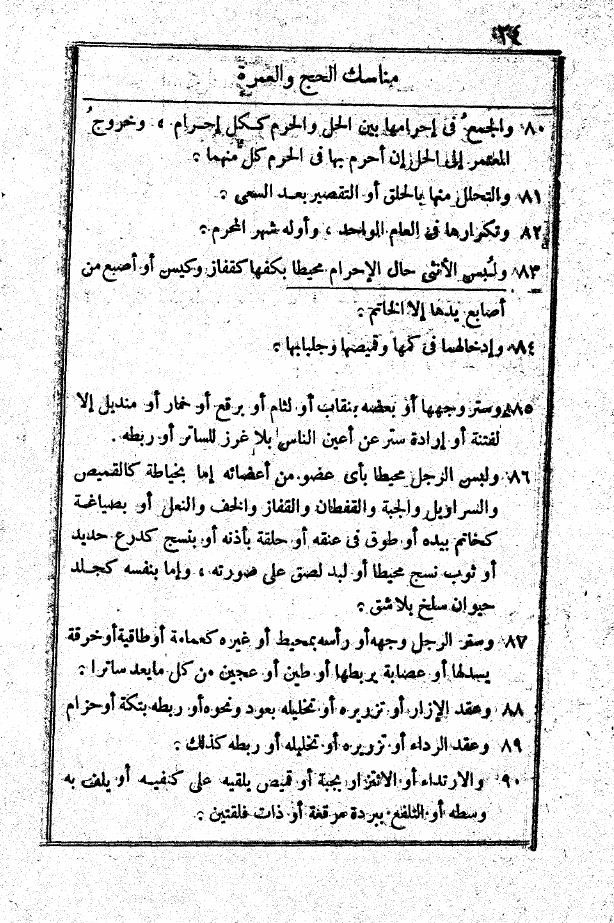 ٤٣٤
مناسك الحج والعمرة
٨٠ والجمعُ فى إحرامها بين الحل والحرم ككل إحرام ، وخروجُ
المعتمر إلى الحل إن أحرم بها فى الحرم كل منهما ؛
٨١ والتحلل منها بالحلق أو التقصير بعد السعى ؛
٨٢ وتكرارها فى العام الواحد ، وأوله شهر المحرم ؛
٨٣ ولُبس الأنثى حال الإحرام محيطا بكفها كقفاز وكيس أو أصبع من
أصابع يدها إلا الخاتم ؛
٨٤ وإدخالهما فى كمها وقميصها وجلبابها ؛
٨٥ وستر وجهها أو بعضه بنقاب أو لثام أو برقع أو خمار أو منديل إلا
لفتنة أو إرادة ستر عن أعين الناس بلا غرز للساتر أو ربطه .
٨٦ ولبس الرجل محيطا بأى عضو من أعضائه إما بخياطة كالقميص
والسراويل والجبة والقفطان والقفاز والخف والنعل أو بصياغة
كخاتم بيده أو طوق فى عنقه أو حلقة بأذنه أو بنسج كدرع حديد
أو ثوب نسج محيطا أو لبد لصق على صورته ، وإما بنفسه كجلد
حيوان سلخ بلا شق ؛
٨٧ وستر الرجل وجهه أو رأسه بمحيط أو غيره كعمامة أو طاقية أو خرقة
يسدلها أو عصابة يربطها أو طين أو عجين من كل ما يعد ساترا ؛
٨٨ وعقد الإزار أو تزريره أو تخليله بعود ونحوه أو ربطه بتكة أو حزام
٨٩ وعقد الرداء أو تزويره أو تخليله أو ربطه كذلك ؛
٩٠ والارتداء أو الاتزار بجبة أو قميص يلقيه على كتفيه أو يلف به
وسطه أو التلفع ببردة مرقعة أو ذات فلقتين ؛